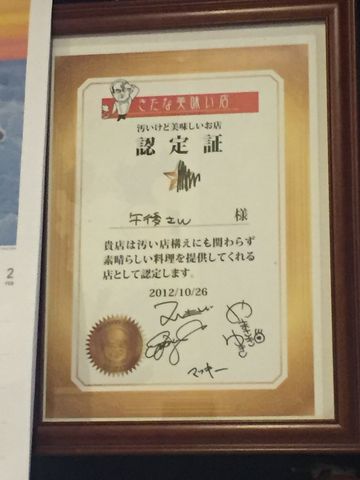 きたな美味い店
汚いけど美味しいお店
認定証
様
貴店は汚い店構えにも関わらず
素晴らしい料理を提供してくれる
店として認定します。
2012/10/26
マッキー
2
FEB